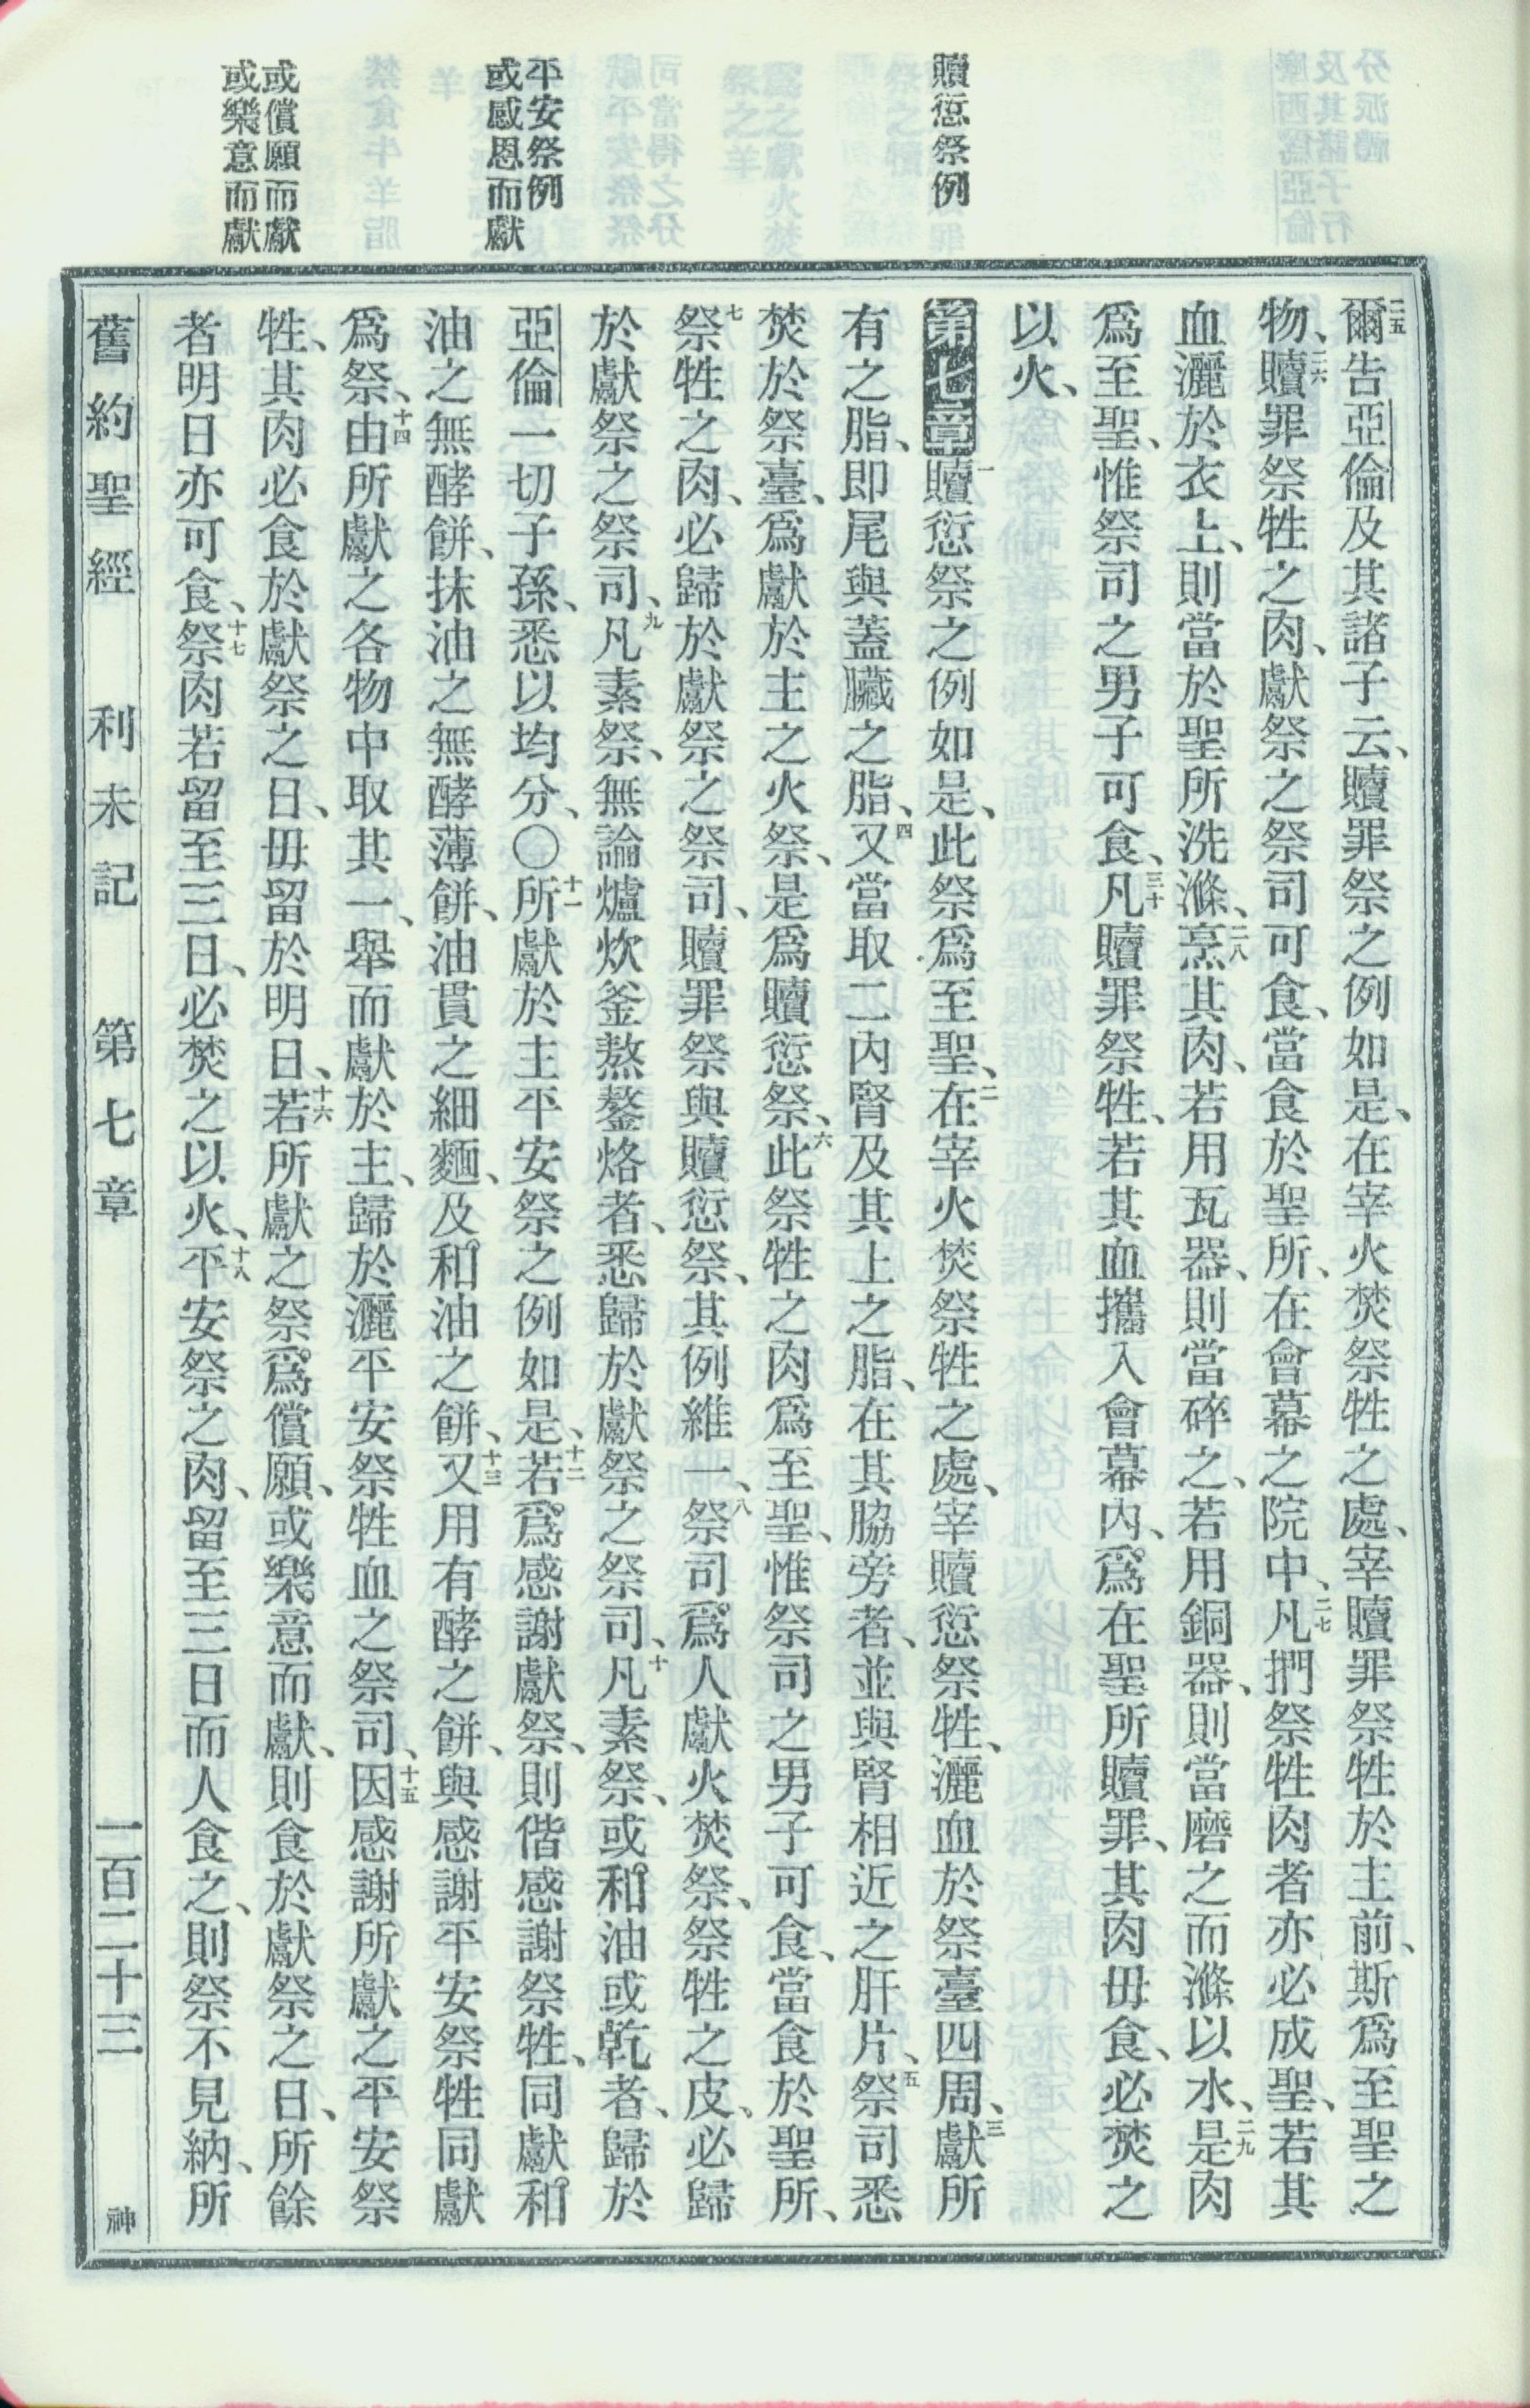 贖愆祭例
平安祭例
或感恩而獻
或償願而獻
或樂意而獻
二五爾告亞倫及其諸子云、贖罪祭之例如是、在宰火焚祭牲之處、宰贖罪祭牲於主前、斯爲至聖之
物、二六贖罪祭牲之肉、獻祭之祭司可食、當食於聖所、在會幕之院中、二七凡捫祭牲肉者亦必成聖、若其
血灑於衣上、則當於聖所洗滌、二八烹其肉、若用瓦器、則當碎之、若用銅器、則當磨之而滌以水、二九是肉
爲至聖、惟祭司之男子可食、三十凡贖罪祭牲、若其血攜入會幕內、爲在聖所贖罪、其肉毋食、必焚之
以火、
第七章 一贖愆祭之例如是、此祭爲至聖、二在宰火焚祭牲之處、宰贖愆祭牲、灑血於祭臺四周、三獻所
有之脂、卽尾與蓋臟之脂、四又當取二內腎及其上之脂、在其脇旁者、並與腎相近之肝片、五祭司悉
焚於祭臺、爲獻於主之火祭、是爲贖愆祭、六此祭牲之肉爲至聖、惟祭司之男子可食、當食於聖所、
七祭牲之肉、必歸於獻祭之祭司、贖罪祭與贖愆祭、其例維一、八祭司爲人獻火焚祭、祭牲之皮、必歸
於獻祭之祭司、九凡素祭、無論爐炊釜熬鏊烙者、悉歸於獻祭之祭司、十凡素祭、或和油或乾者、歸於
亞倫一切子孫、悉以均分、〇十一所獻於主平安祭之例如是、十二若爲感謝獻祭、則偕感謝祭牲、同獻和
油之無酵餅、抹油之無酵薄餅、油貫之細麵、及和油之餅、十三又用有酵之餅、與感謝平安祭牲同獻
爲祭、十四由所獻之各物中取其一、舉而獻於主、歸於灑平安祭牲血之祭司、十五因感謝所獻之平安祭
牲、其肉必食於獻祭之日、毋留於明日、十六若所獻之祭爲償願、或樂意而獻、則食於獻祭之日、所餘
者明日亦可食、十七祭肉若留至三日、必焚之以火、十八平安祭之肉、留至三日而人食之、則祭不見納、所
舊約聖經 利未記 第七章 一百二十三 神